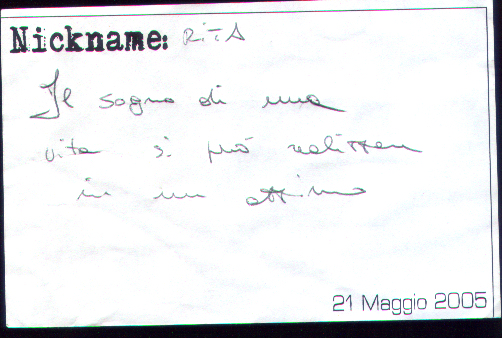 Nickname: RITA
Il sogno di una
vita si può realizzare
in un attimo
21 Maggio 2005